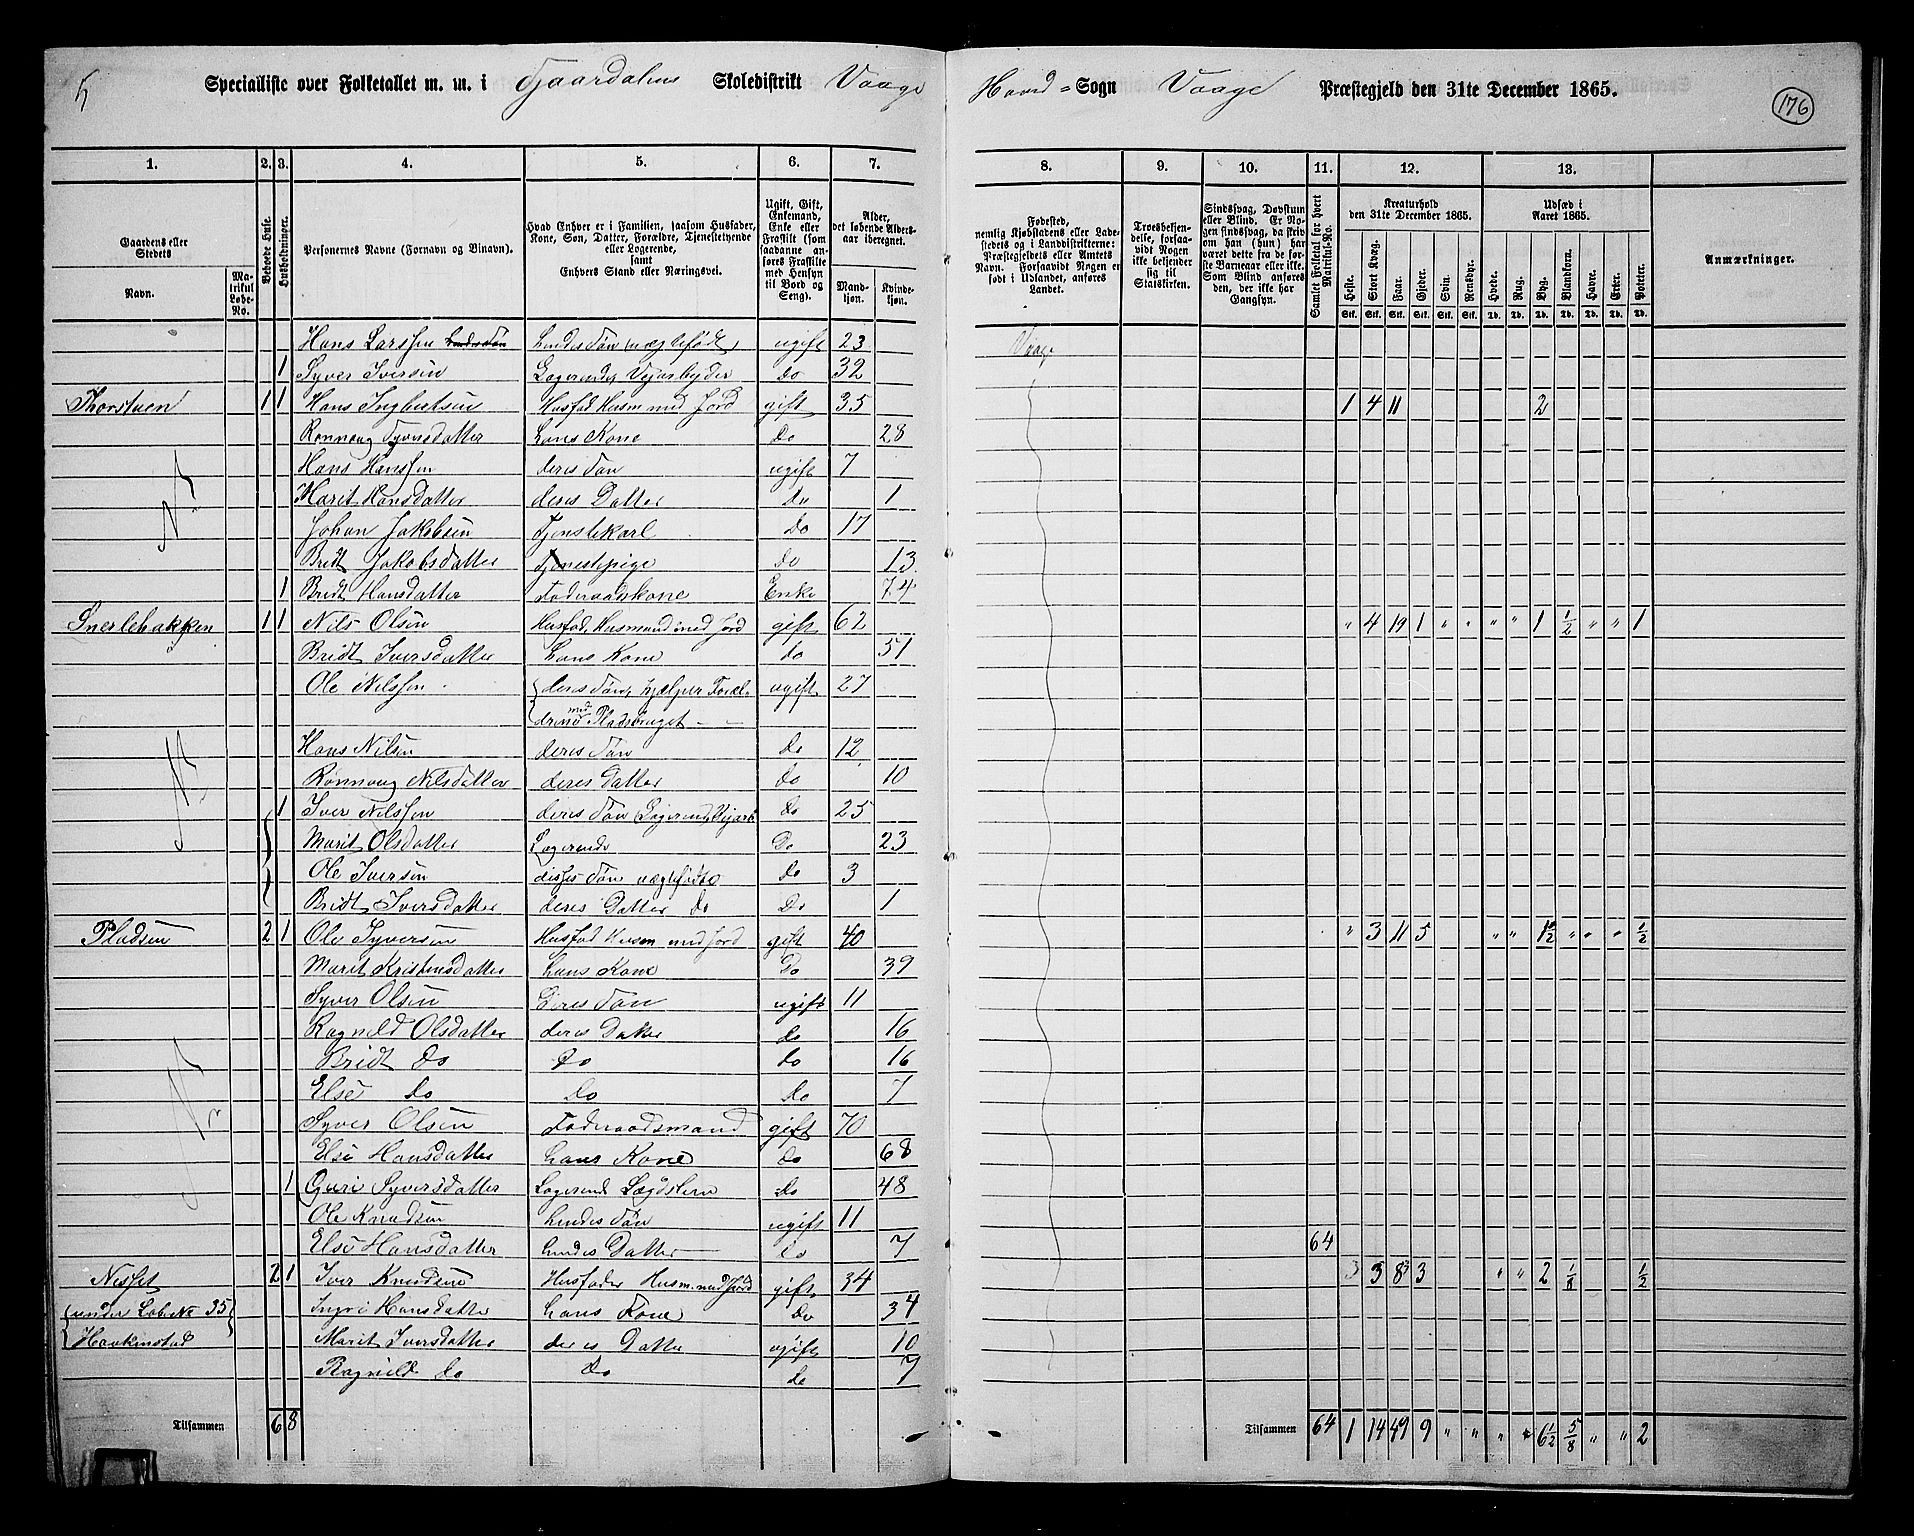 5
Specialliste over Folketallet m. m. i Tjaardalens Skoledistrikt Vaage Hoved-Sogn Vaage Præstegjeld den 31te December 1865.
176
1. 2. 3. 4. 5. 6. 7. 8. 9. 10. 11. 12. 13.
Gaardens eller Stedets
Navn. Matrikul Løbe-No.
Beboede Huse.
Husholdninger.
Personernes Navne (Fornavn og Binavn).
Hvad Enhver er i Familien, saasom Husfader, Kone, Søn, Datter, Forældre, Tjenestetyende eller Logerende, samt Enhvers Stand eller Næringsvei.
Ugift, Gift, Enkemand, Enke eller Fraskilt (som saadanne anføres Fraskilte med Hensyn til Bord og Seng).
Alder, det løbende Aldersaar iberegnet.
Mandkjøn. Kvindekjøn.
Fødested, nemlig Kjøbstadens eller Ladestedets og i Landdistrikterne: Præstegjeldets eller Amtets Navn. Forsaavidt Nogen er født i Udlandet, anføres Landet.
Troesbekjendelse, forsaavidt Nogen ikke bekjender sig til Statskirken.
Sindssvag, Døvstum eller Blind. Er Nogen sindssvag, da skriv om han (hun) har været dette fra de første Barneaar eller ikke. Som Blind anføres den, der ikke har Gangsyn.
Samlet Folketal for hvert Matrikul-No.
Kreaturhold den 31te December 1865.
Heste. Stort Kvæg. Faar. Gjeder. Svin. Rensdyr.
Udsæd i Aaret 1865.
Hvede. Rug. Byg. Blandkorn. Havre. Erter. Poteter.
Anmærkninger.
Hans Larssen hendes Søn uægtefødt ugift 23 Vaage
1 Syver Iversen Logerende Vejarbejder Do 32
Thorstuen 1 1 Hans Ingbretsen Husfad Husm med Jord gift 35 1 4 11 2
Rønnoug Syversdatter hans Kone Do 28
Hans Hanssen deres Søn ugift 7
Marit Hansdatter deres Datter Do 1
Johan Jakobsen Tjenstekarl Do 17
Bridt Jakobsdatter Tjenestepige Do 13
1 Bridt Hansdatter Føderaadskone Enke 74
Snerlebakken 1 1 Nils Olsen Husfad, Husmand med Jord gift 62 " 4 19 1 " " " " 1 1/2 " " 1
Bridt Iversdatter hans Kone do 51
Ole Nilssen deres Søn, hjælper Foræl-
drene med Pladsbruget ugift 27
Hans Nilsen deres Søn Do 12
Rønnoug Nilsdatter deres Datter do 10
1 Iver Nilssen deres Søn Logerend, Vejarb Do 25
Marit Olsdatter Logerende Do 23
Ole Iversen disses Søn uægtefødt Do 3
Bridt Iversdatter deres Datter do Do 1
Pladsen 2 1 Ole Syversen Husfad Husm med Jord gift 40 " 3 11 5 " " 1 1/2 " " " 1/2
Marit Kristensdatter hans Kone Do 39
Syver Olsen Deres Søn ugift 11
Ragnild Olsdatter deres Datter do 16
Bridt do Do do 16
Else do Do do 7
Syver Olsen Føderaadsmand gift 70
Else Hansdatter hans Kone do 68
1 Guri Syversdatter Logerend Lægdslem do 48
Ole Knudsen hendes Søn ugift 11
Else Hansdatter hendes Datter do 7 64
Nesset 2 1 Iver Knudsen Husfader Husm. med Jord gift 34 3 3 8 3 " " 2 1/8 1/2
under Løbe No 35 Ingri Hansdatter hans Kone Do 34
Haakenstad Marit Iversdatter deres Datter ugift 10
Ragnild do Do do 7
Tilsammen 6 8 Tilsammen 64 1 14 49 9 " " " " 6 1/2 5/8 " " 2